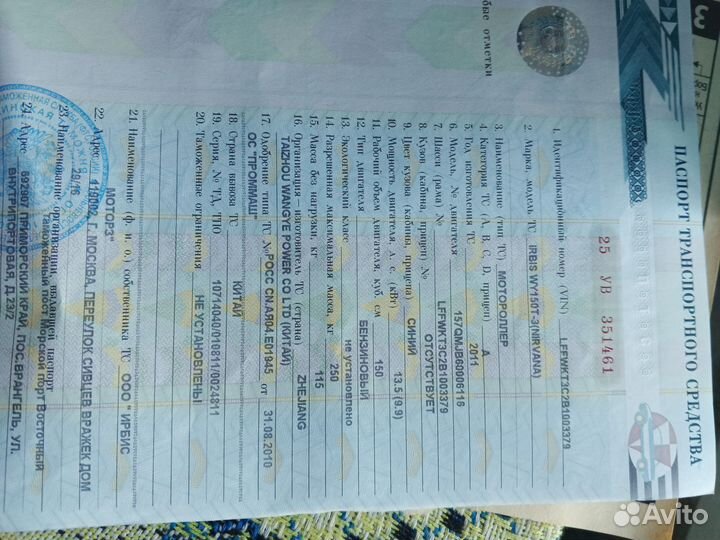 ПАСПОРТ ТРАНСПОРТНОГО СРЕДСТВА
25 УВ 351461
1. Идентификационный номер (VIN) LFFWKT3C2B1003379
2. Марка, модель ТС IRBIS WY150T-3(NIRVANA)
3. Наименование (тип ТС) МОТОРОЛЛЕР
4. Категория ТС (А, В, С, D, прицеп) А
5. Год изготовления ТС 2011
6. Модель, № двигателя 157QMJB60006118
7. Шасси (рама) № LFFWKT3C2B1003379
8. Кузов (кабина, прицеп) № ОТСУТСТВУЕТ
9. Цвет кузова (кабины, прицепа) СИНИЙ
10. Мощность двигателя, л. с. (кВт) 13.5 (9.9)
11. Рабочий объем двигателя, куб. см 150
12. Тип двигателя БЕНЗИНОВЫЙ
13. Экологический класс не установлено
14. Разрешенная максимальная масса, кг 250
15. Масса без нагрузки, кг 115
16. Организация – изготовитель ТС (страна) ZHEJIANG
TAIZHOU WANGYE POWER CO LTD (КИТАЙ)
17. Одобрение типа ТС № РОСС CN.АЯ04.Е01945 от 31.08.2010
ОС "ПРОММАШ"
18. Страна вывоза ТС КИТАЙ
19. Серия, № ТД, ТПО 10714040/010811/0024811
20. Таможенные ограничения НЕ УСТАНОВЛЕНЫ
21. Наименование (ф. и. о.) собственника ТС ООО " ИРБИС
МОТОРЗ"
22. Адрес 119002, Г. МОСКВА, ПЕРЕУЛОК СИВЦЕВ ВРАЖЕК ДОМ
29/16
23. Наименование организации, выдавшей паспорт
Таможенный пост Морской порт Восточный
24. Адрес 692907 ПРИМОРСКИЙ КРАЙ, ПОС.ВРАНГЕЛЬ, УЛ.
ВНУТРИПОРТОВАЯ, Д.23/2
бые отметки
Avito